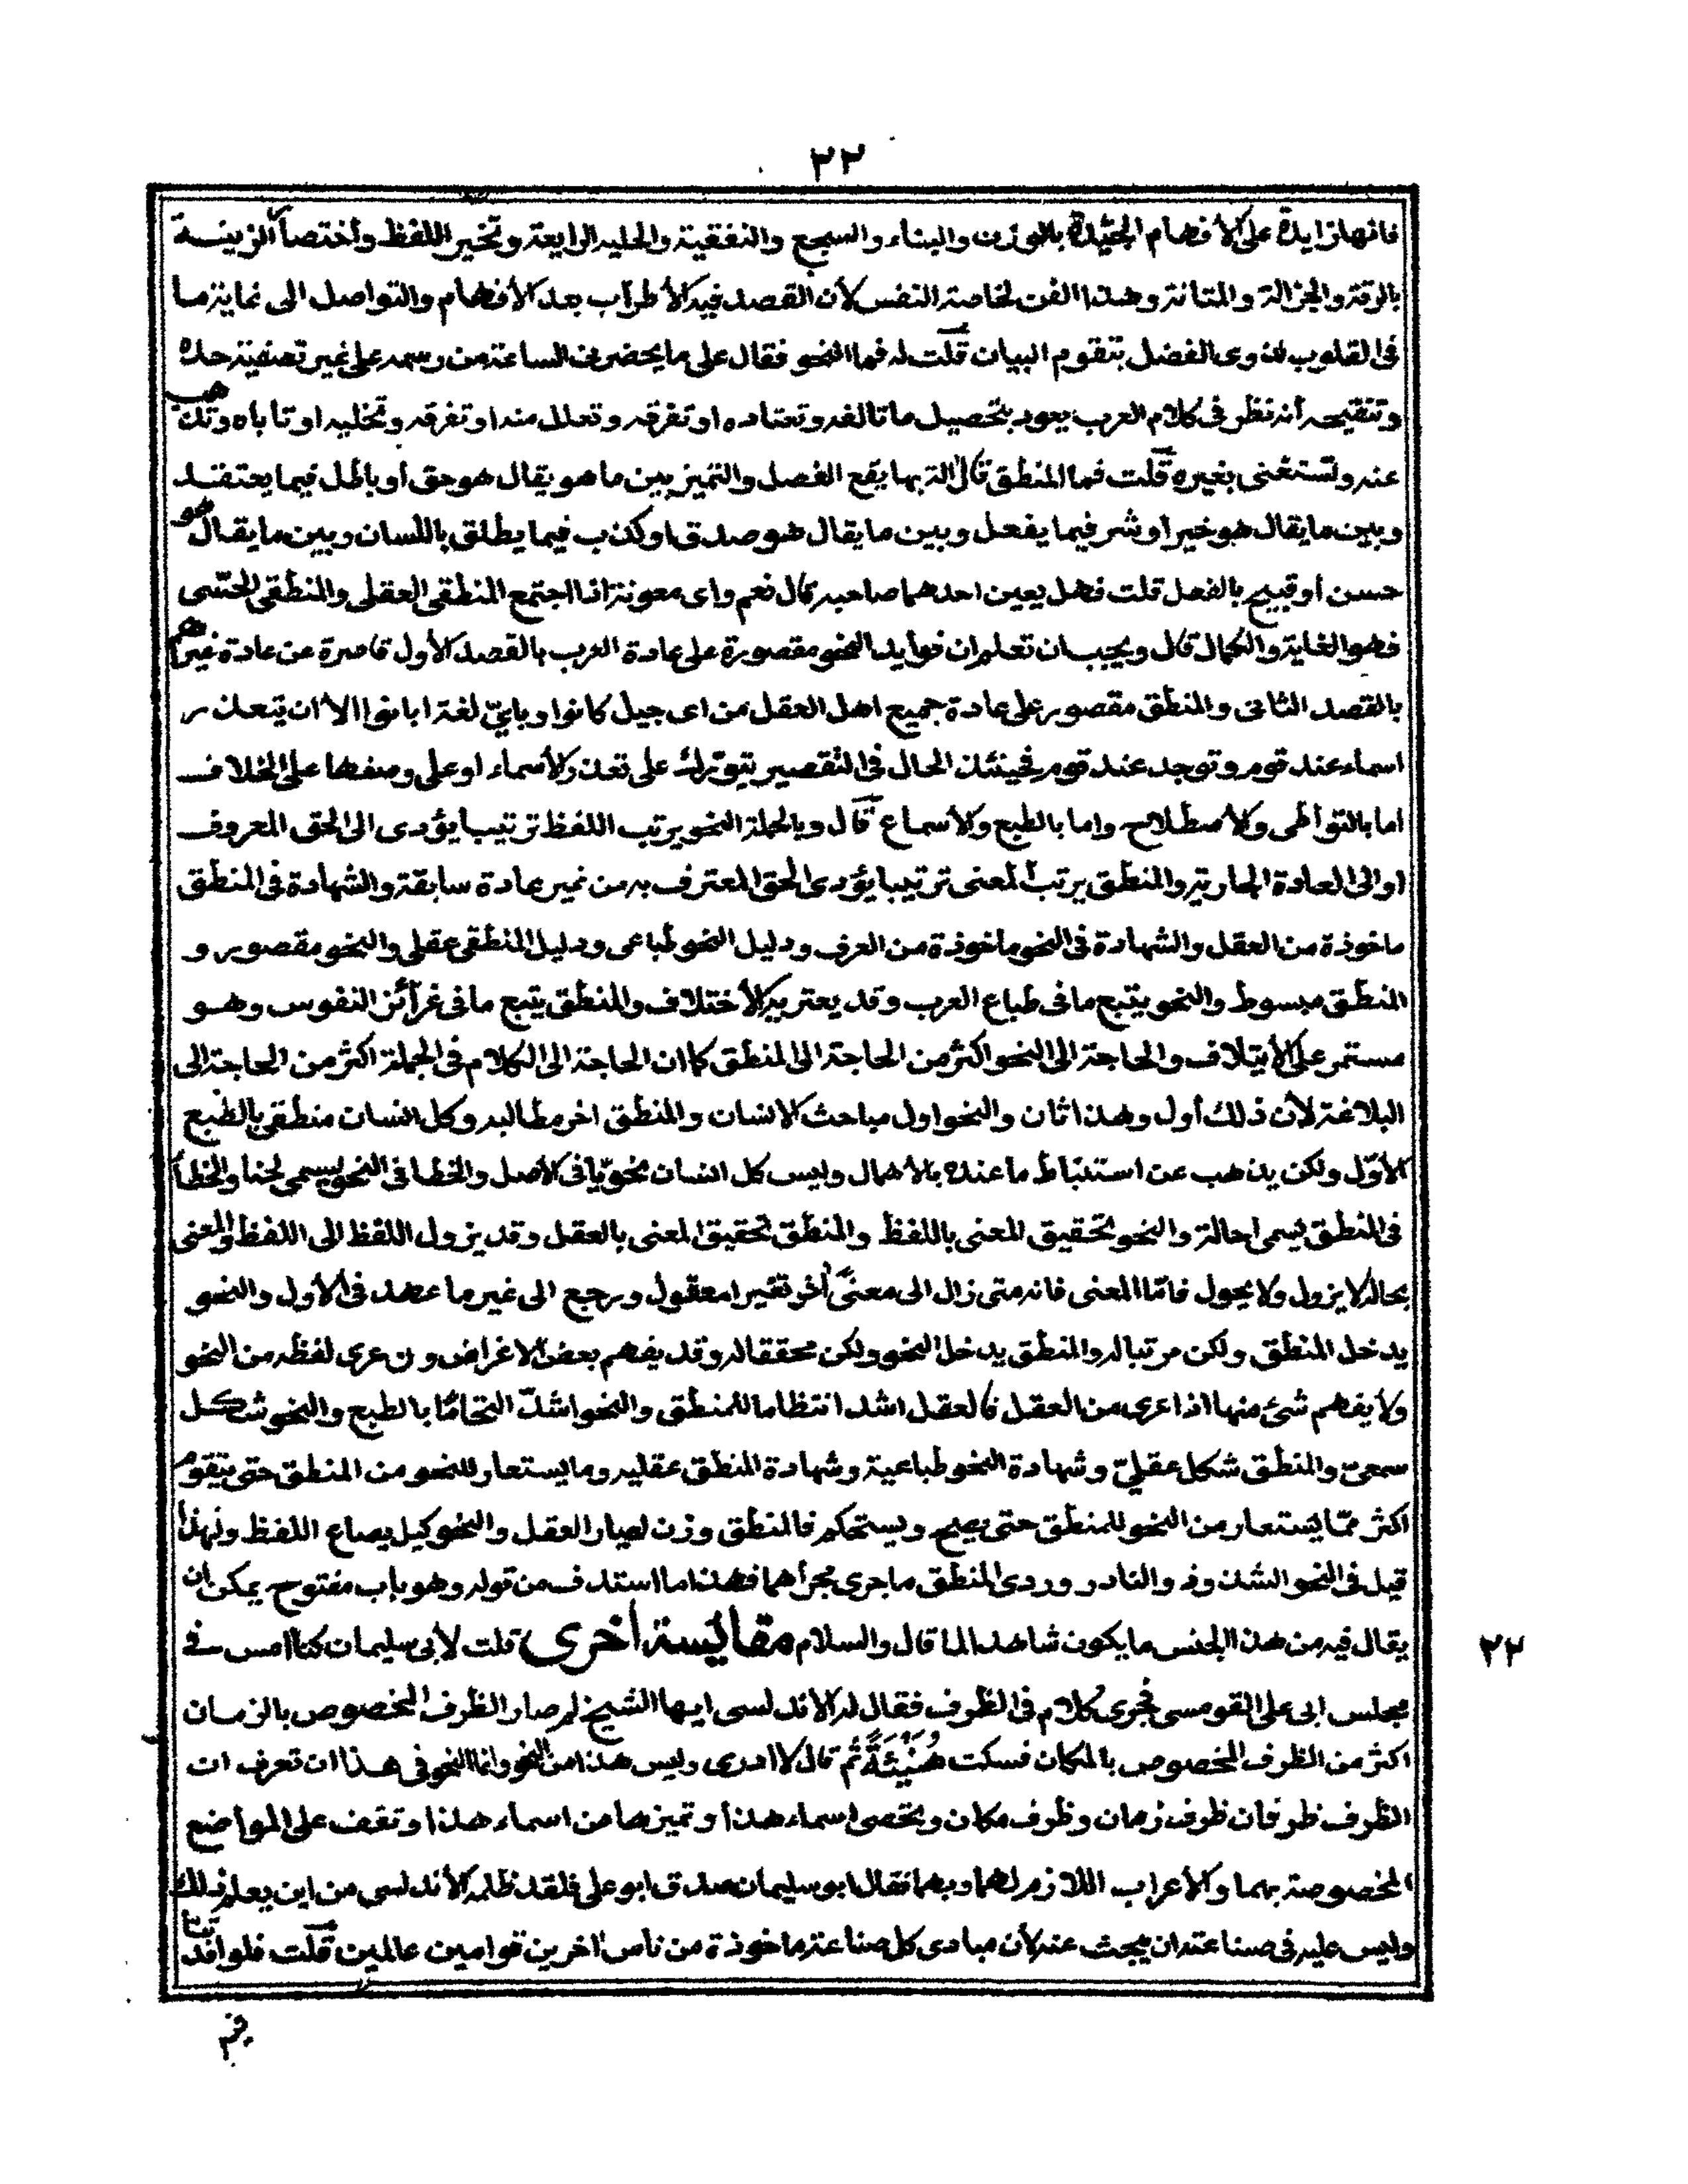 ٢٢
فانها زايدة على الأفهام الجيّدة بالوزن والبناء والسجع والتقفية والحلية الرايعة وتخير اللفظ وأختصار الزينة
بالرقة والجزالة والمتانة وهذا الفن لخاصة النفس لأن القصد فيه الأطراب بعد الأفهام والتواصل الى غاية ما
فى القلوب لذوى الفضل بتقوم البيان قلت له فما النحو فقال على ما يحضرنى الساعة من رسمه على غير تصفية حده
وتنقيحه أنه نظر فى كلام العرب يعود بتحصيل ما تالفه وتعتاده او تفرقه وتعلل منه او تفرقه وتخليه او تاباه وتذهب
عنه وتستغنى بغيره قلت فما المنطق قال الة بها يقع الفصل والتميز بين ما هو يقال هو حق أو باطل فيما يعتقد
وبين ما يقال هو خير او شر فيما يفعل وبين ما يقال هو صدق او كذب فيما يطلق باللسان وبين ما يقال هو
حسن أو قبيح بالفعل قلت فهل يعين احدهما صاحبه قال نعم واى معونة اذا اجتمع المنطقى العقلى والمنطقى الحسّى
فهو الغاية والكمال قال ويجب ان تعلم ان فوايد النحو مقصورة على عادة العرب بالقصد الأول قاصرة عن عادة غيرهم
بالقصد الثانى والمنطق مقصور على عادة جميع اهل العقل من اى جيل كانوا وبايّ لغة ابانوا الا ان يتعذر
اسماء عند قوم وتوجد عند قوم فحينئذ الحال فى التقصير يتورك على تعذر الأسماء او على وصفها على الخلاف
اما بالتواطى والأصطلاح واما بالطبع والأسماع قال وبالجملة النحو يرتب اللفظ ترتيبا يؤدى الى الحق المعروف
او الى العادة الجارية والمنطق يرتب المعنى ترتيبا يؤدى الى الحق المعترف به من غير عادة سابقة والشهادة فى المنطق
ماخوذة من العقل والشهادة فى النحو ماخوذة من العرف ودليل النحو طباعى ودليل المنطقى عقلى والنحو مقصور و
المنطق مبسوط والنحو يتبع ما فى طباع العرب وقد يعتريه الأختلاف والمنطق يتبع ما فى غرآئز النفوس وهو
مستمر على الأيتلاف والحاجة الى النحو اكثر من الحاجة الى المنطق كما ان الحاجة الى الكلام فى الجملة اكثر من الحاجة الى
البلاغة لأن ذلك أول وهذا ثان والنحو اول مباحث الانسان والمنطق اخر مطالبه وكل انسان منطقى بالطبع
الأوّل ولكن يذهب عن استنباط ما عنده بالأهمال وليس كل انسان نحويّا فى الأصل والخطا فى النحو يسمى لحنا والخطأ
فى المنطق يسمى احالة والنحو تحقيق المعنى باللفظ والمنطق تحقيق المعنى بالعقل وقد يزول اللفظ الى اللفظ والمعنى
بحاله لا يزول ولا يحول فامّا المعنى فانه متى زال الى معنًى أخر تغير امعقول ورجع الى غير ما عهد فى الأول والنحو
يدخل المنطق ولكن مرتبا له والمنطق يدخل النحو ولكن محققا له وقد يفهم بعض الاغراض ون عرى لفظه من النحو
ولا يفهم شئ منها اذا عرى من العقل فالعقل اشد انتظاما للمنطق والنحو اشدّ التحامًا بالطبع والنحو شكل
سمعىّ والمنطق شكل عقلىّ وشهادة النحو طباعية وشهادة المنطق عقليه وما يستعار للنحو من المنطق حتى يتقوم
اكثر ممّا يستعار من النحو للمنطق حتى يصح ويستحكم فالمنطق وزن لعيار العقل والنحو كيل بصاع اللفظ ولهذا
قيل فى النحو الشذوذ والنادر وردى المنطق ما جرى مجرأهما فهذا ما استدف من قوله وهو باب مفتوح يمكن ان
يقال فيه من هذا الجنس ما يكون شاهدا لما قال والسلام مقايسة أخرى) قلت لأبى سليمان كنا امس فى
٢٢
مجلس ابى على القومسى فجرى كلام فى الظروف فقال له الاندلسى ايها الشيخ لم صار الظرف المخصوص بالزمان
اكثر من الظرف المخصوص بالمكان فسكت هُنَيْئَةً ثُم قال لا ادرى وليس هذا من النحو وانما النحو فى هذا ان تعرف ان
الظرف ظرفان ظرف زمان وظرف مكان وتحصى اسماء هذا وتميزها من اسماء هذا وتقف على المواضع
المخصوصة بهما والأعراب اللازم لهما وبهما فقال ابو سليمان صدق ابو على فلقد ظلمه الأندلسى من اين يعلم ذلك
وليس عليه فى صناعته ان يبحث عنه لأن مبادى كل صناعة ماخوذة من ناس اخرين قوامين عالمين قلت فلو افدتنا